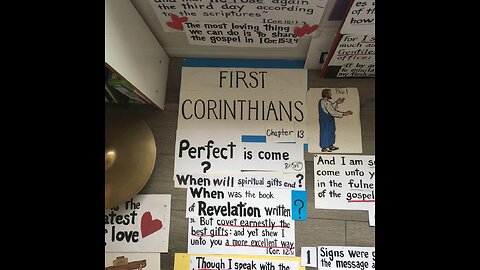 and that He rose again
the third day according
to the scriptures" 1 Cor. 15:1-4
The most loving thing
we can do is to share
the gospel in 1 Cor. 15:3-4
For I
Gentiles
office:
FIRST
CORINTHIANS
Chapter 13
Paul
Perfect is come
?
When will spiritual gifts end?
When was the book
of Revelation written
?
31 But covet earnestly the
best gifts: and yet shew I
unto you a more excellent way.
1 Cor. 12:31
Though I speak with the
And I am su
come unto yo
in the fulne
of the gospel
1 Signs were g
the message a
atest of
love